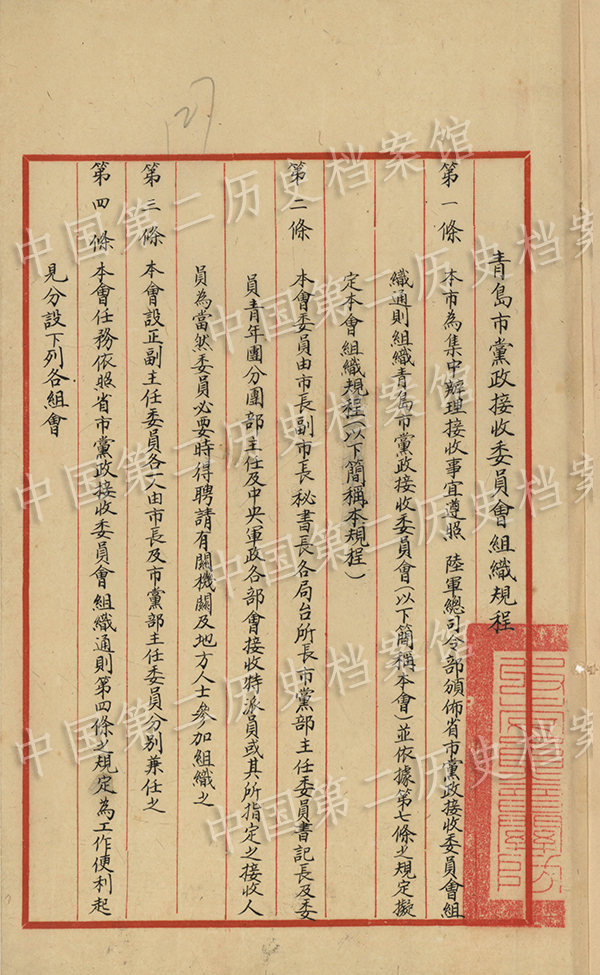 青島市黨政接收委員會組織規程
第一條 本市為集中辦理接收事宜遵照 陸軍總司令部頒佈省市黨政接收委員會組
織通則組織青島市黨政接收委員會(以下簡稱本會)並依據第七條之規定擬
定本會組織規程(以下簡稱本規程)
第二條 本會委員由市長副市長秘書長各局台所長市黨部主任委員書記長及委
員青年團分團部主任及中央軍政各部會接收特派員或其所指定之接收人
員為當然委員必要時得聘請有關機關及地方人士參加組織之
第三條 本會設正副主任委員各一人由市長及市黨部主任委員分別兼任之
第四條 本會任務依照省市黨政接收委員會組織通則第四條之規定為工作便利起
見分設下列各組會
中国第二历史档案馆
中国第二历史档案馆
中国第二历史档案馆
中国第二历史档案馆
中国第二历史档案馆
中国第二历史档案馆